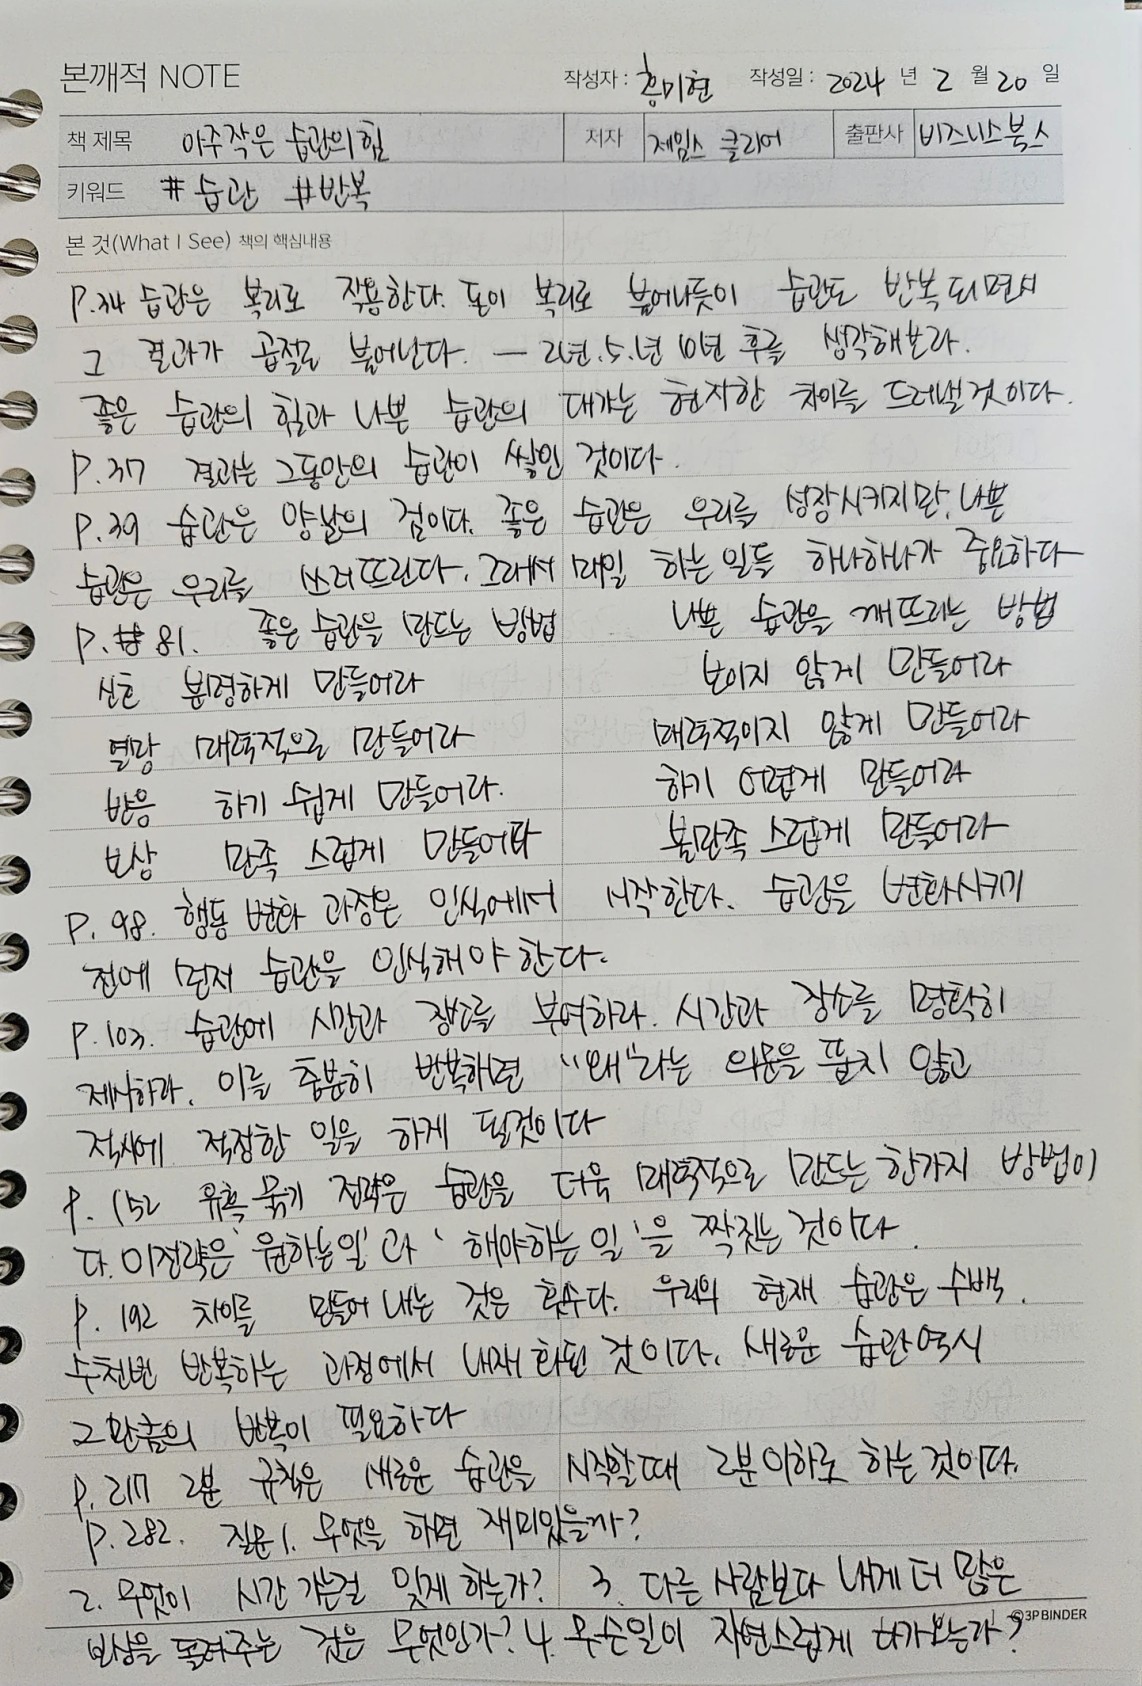 본깨적 NOTE 작성자 : 홍미현 작성일 : 2024 년 2 월 20 일
책 제목 아주작은 습관의 힘 저자 제임스 클리어 출판사 비즈니스북스
키워드 # 습관 #반복
본 것(What I See) 책의 핵심내용
P.34 습관은 복리로 작용한다. 돈이 복리로 불어나듯이 습관도 반복되면서
그 결과가 곱절로 불어난다. — 2년.5.년 10년 후를 생각해보라.
좋은 습관의 힘과 나쁜 습관의 대가는 현저한 차이를 드러낼것이다.
P.37 결과는 그동안의 습관이 쌓인 것이다.
P.39 습관은 양날의 검이다. 좋은 습관은 우리를 성장시키지만, 나쁜
습관은 우리를 쓰러뜨린다. 그래서 매일 하는 일들 하나하나가 중요하다
P.# 81. 좋은 습관을 만드는 방법 나쁜 습관을 깨뜨리는 방법
신호 분명하게 만들어라 보이지 않게 만들어라
열망 매력적으로 만들어라 매력적이지 않게 만들어라
반응 하기 쉽게 만들어라. 하기 어렵게 만들어라
보상 만족 스럽게 만들어라 불만족 스럽게 만들어라
P. 98. 행동 변화 과정은 인식에서 시작한다. 습관을 변화시키기
전에 먼저 습관을 인식해야 한다.
P.103. 습관에 시간과 장소를 부여하라. 시간과 장소를 명확히
제시하라. 이를 충분히 반복하면 "왜"라는 의문을 품지 않고
적시에 적정한 일을 하게 될것이다
P. 152 유혹 묶기 전략은 습관을 더욱 매력적으로 만드는 한가지 방법이
다. 이전략은 '원하는일'과 '해야하는 일'을 짝짓는 것이다.
P. 192 차이를 만들어 내는 것은 횟수다. 우리의 현재 습관은 수백.
수천번 반복하는 과정에서 내재 화된 것이다. 새로운 습관역시
그만큼의 반복이 필요하다
P.217 2분 규칙은 새로운 습관을 시작할때 2분이하로 하는 것이다.
P.282. 질문1. 무엇을 하면 재미있을까?
2. 무엇이 시간 가는걸 잊게 하는가? 3. 다른 사람보다 내게 더 많은
보상을 돌려주는 것은 무엇인가? 4. 무슨일이 자연스럽게 다가오는가?
3P BINDER